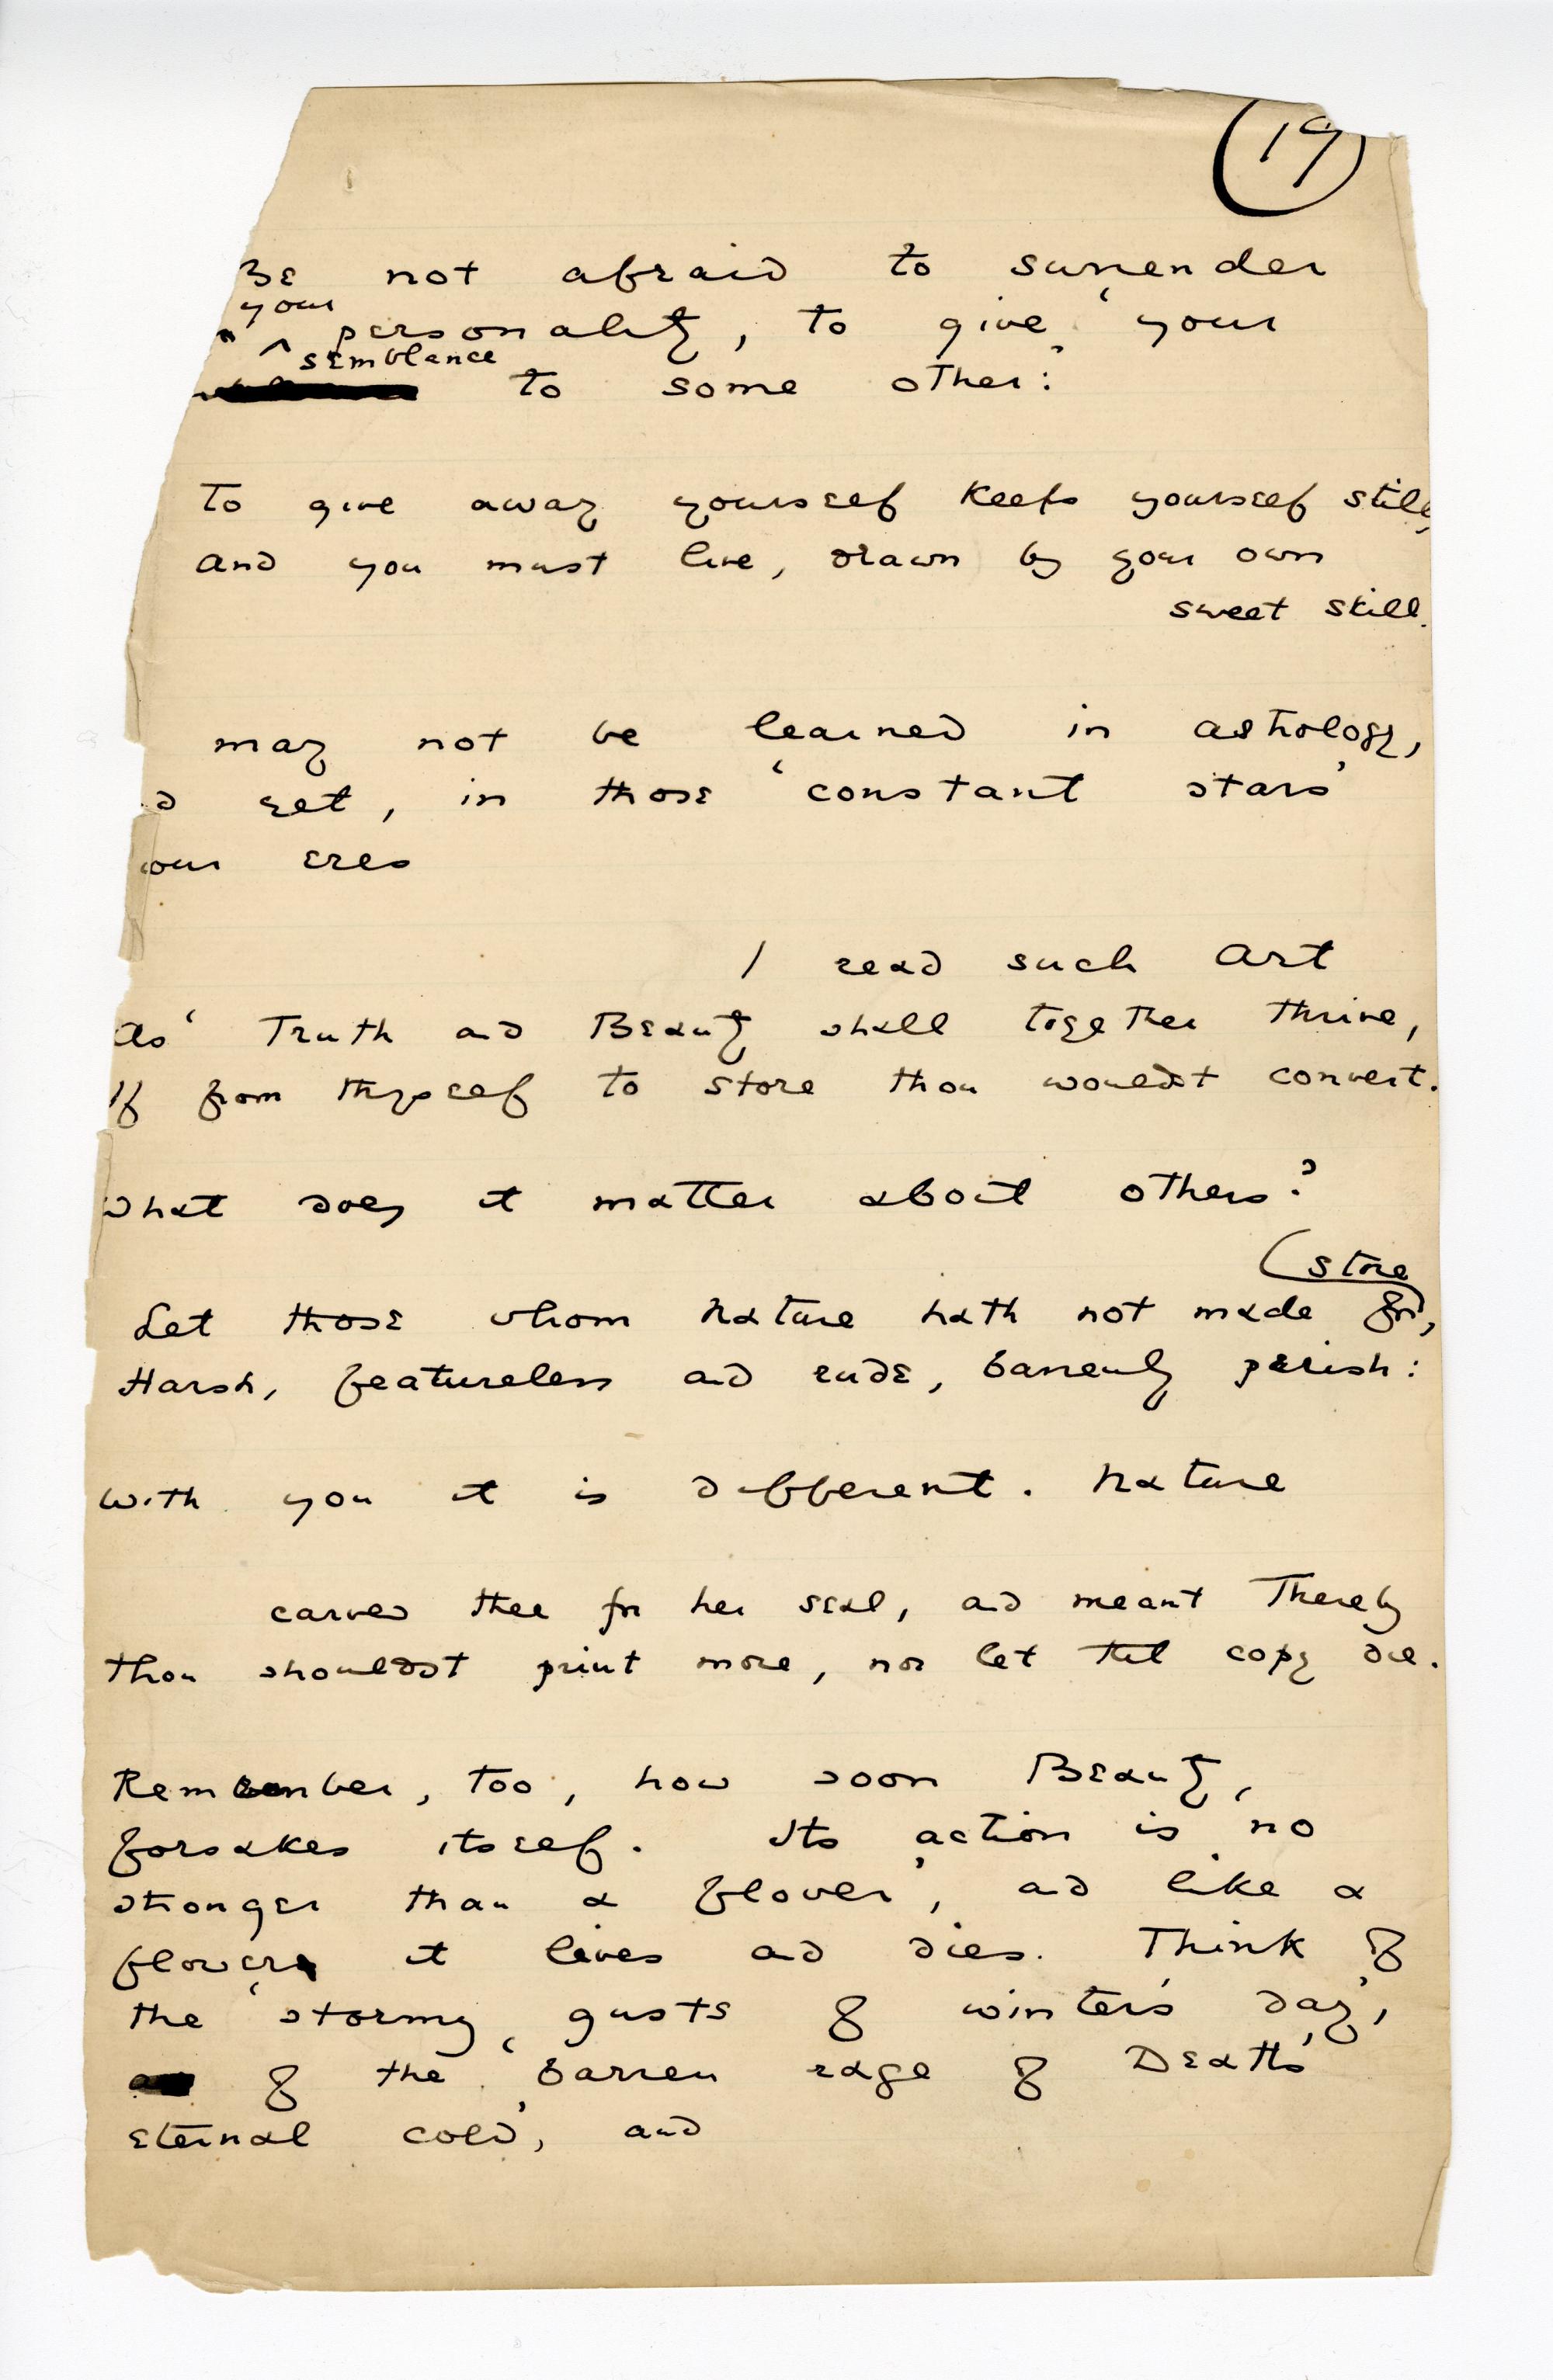 19
Be not afraid to surrender
your
personality, to give 'your
semblance
to some other:'
To give away yourself keeps yourself still,
And you must live, drawn by your own
sweet skill.
may not be learned in astrology,
yet, in those 'constant stars'
eyes
I read such Art
As 'Truth and Beauty shall together thrive,
If from thyself to store thou wouldst convert.
What does it matter about others?
(store
Let those whom Nature hath not made for,
Harsh, featureless and rude, barrenly perish:
With you it is different. Nature
carved thee for her seal, and meant thereby
Thou shouldst print more, nor let that copy die.
Remember, too, how soon Beauty,
forsakes itself. Its action is no
stronger than a flower', and like a
flower it lives and dies. Think of
the 'stormy gusts of winter's day',
of the 'barren edge of Death's
eternal cold', and